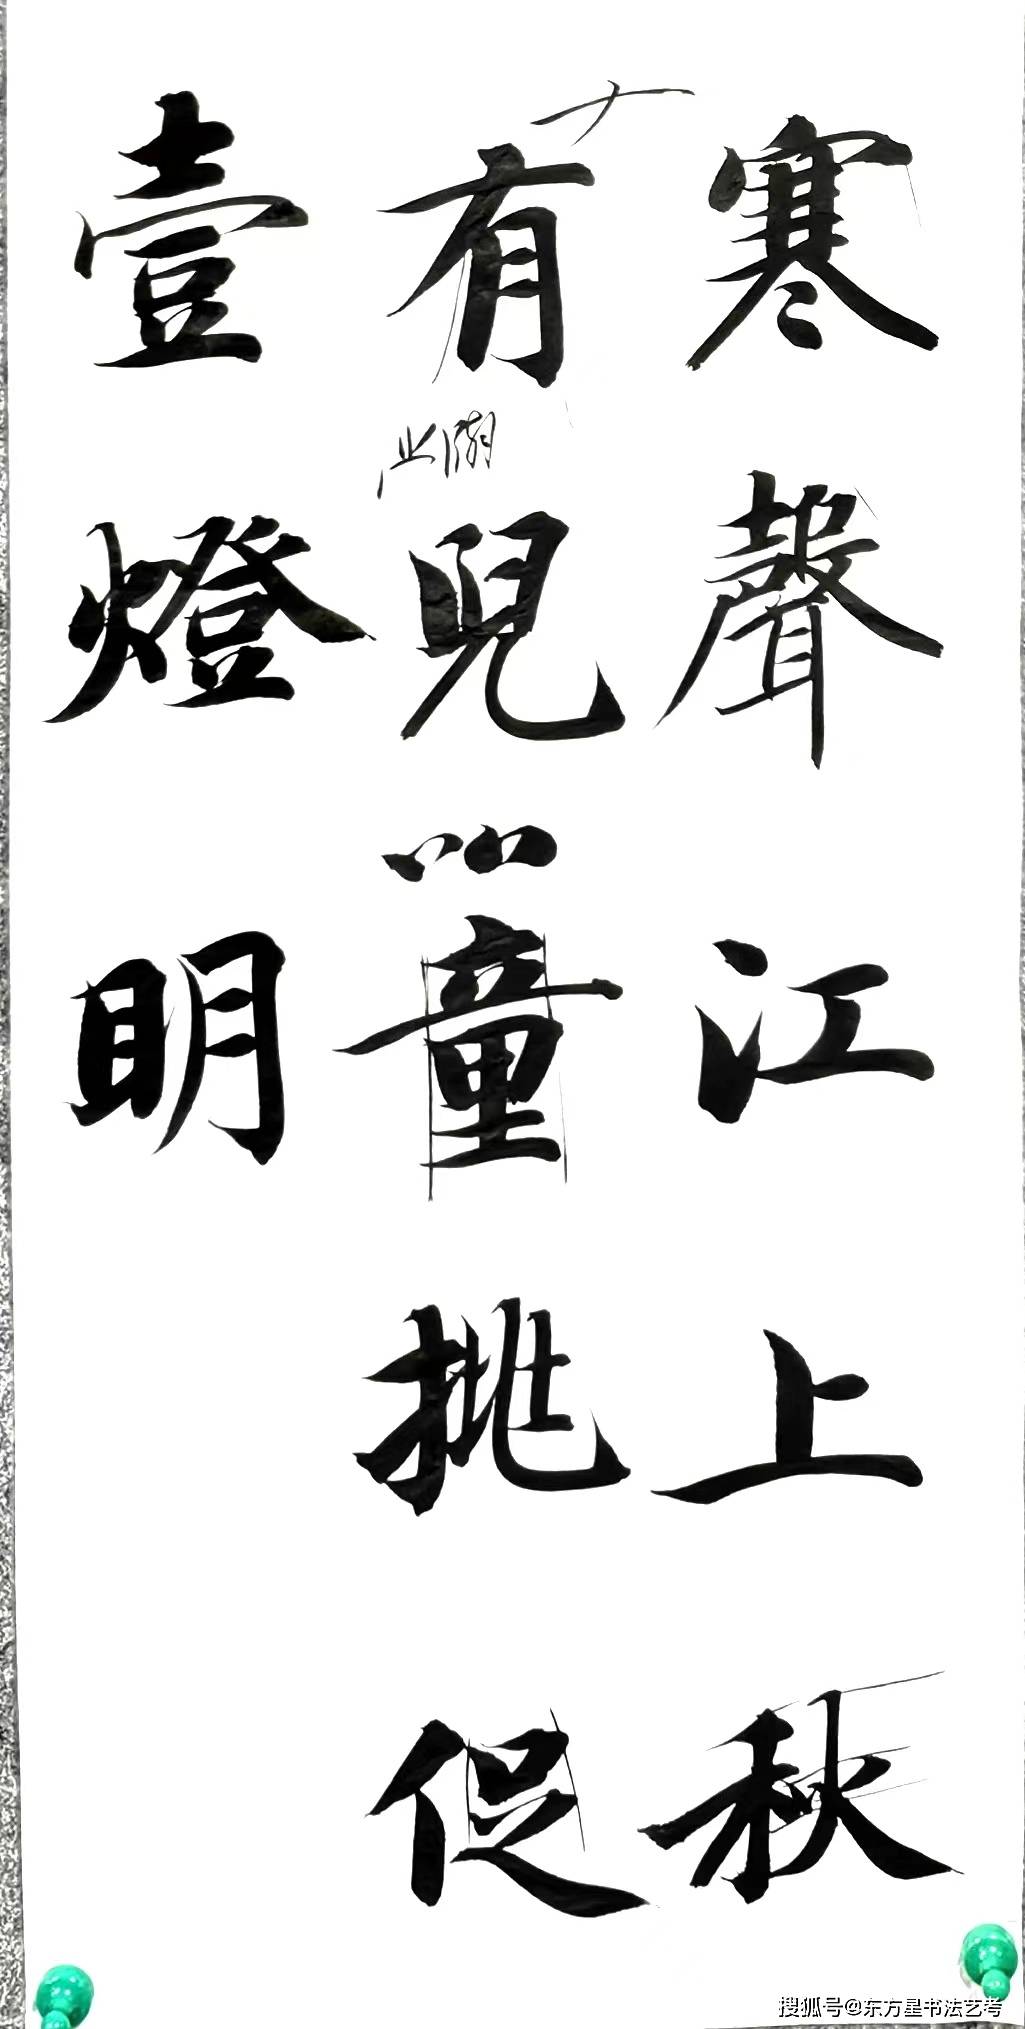 寒聲江上秋
有兒童挑促
壹燈明
搜狐号@东方星书法艺考